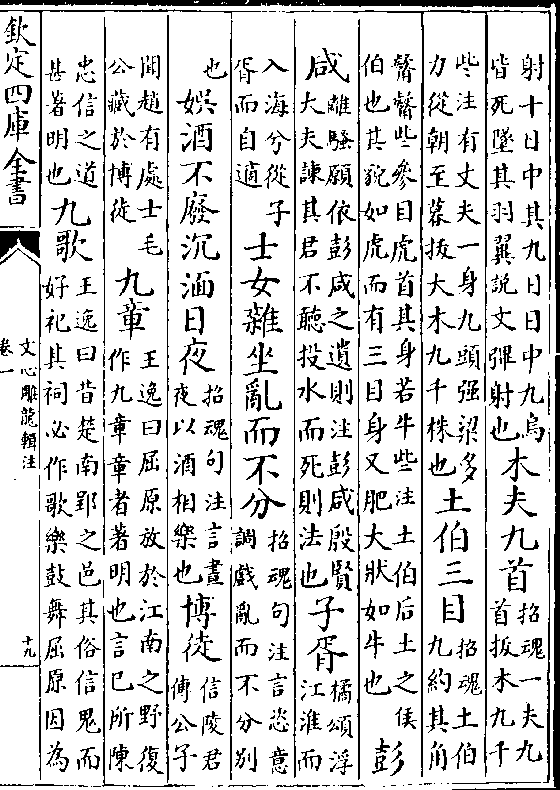 射十日中其九日日中九烏
皆死墮其羽翼說文彈射也
木夫九首
招魂一夫九
首拔木九千
些注有丈夫一身九頭强梁多
力從朝至暮拔大木九千株也
土伯三目
招魂土伯
九約其角
觺觺些參目虎首其身若牛些注土伯后土之侯
伯也其貌如虎而有三目身又肥大狀如牛也
彭
咸
離騷願依彭咸之遺則注彭咸殷賢
大夫諫其君不聽投水而死則法也
子胥
橘頌浮
江淮而
入海兮從子
胥而自適
士女雜坐亂而不分
招魂句注言恣意
調戲亂而不分別
也
娛酒不廢沉湎日夜
招魂句注言晝
夜以酒相樂也
博徒
信陵君
傳公子
聞趙有處士毛
公藏於博徒
九章
王逸曰屈原放於江南之野復
作九章章者著明也言已所陳
忠信之道
甚著明也
九歌
王逸曰昔楚南郢之邑其俗信鬼而
好祀其祠必作歌樂鼓舞屈原因為
欽定四庫全書
文心雕龍輯注
卷一
十九